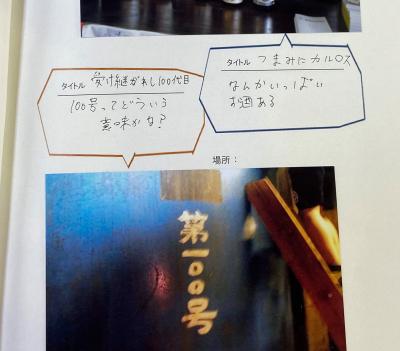 タイトル つまみにカルロス
なんかいっぱい
お酒ある
タイトル 受け継がれし100代目
100号ってどういう
意味かな?
場所:
第一〇〇号